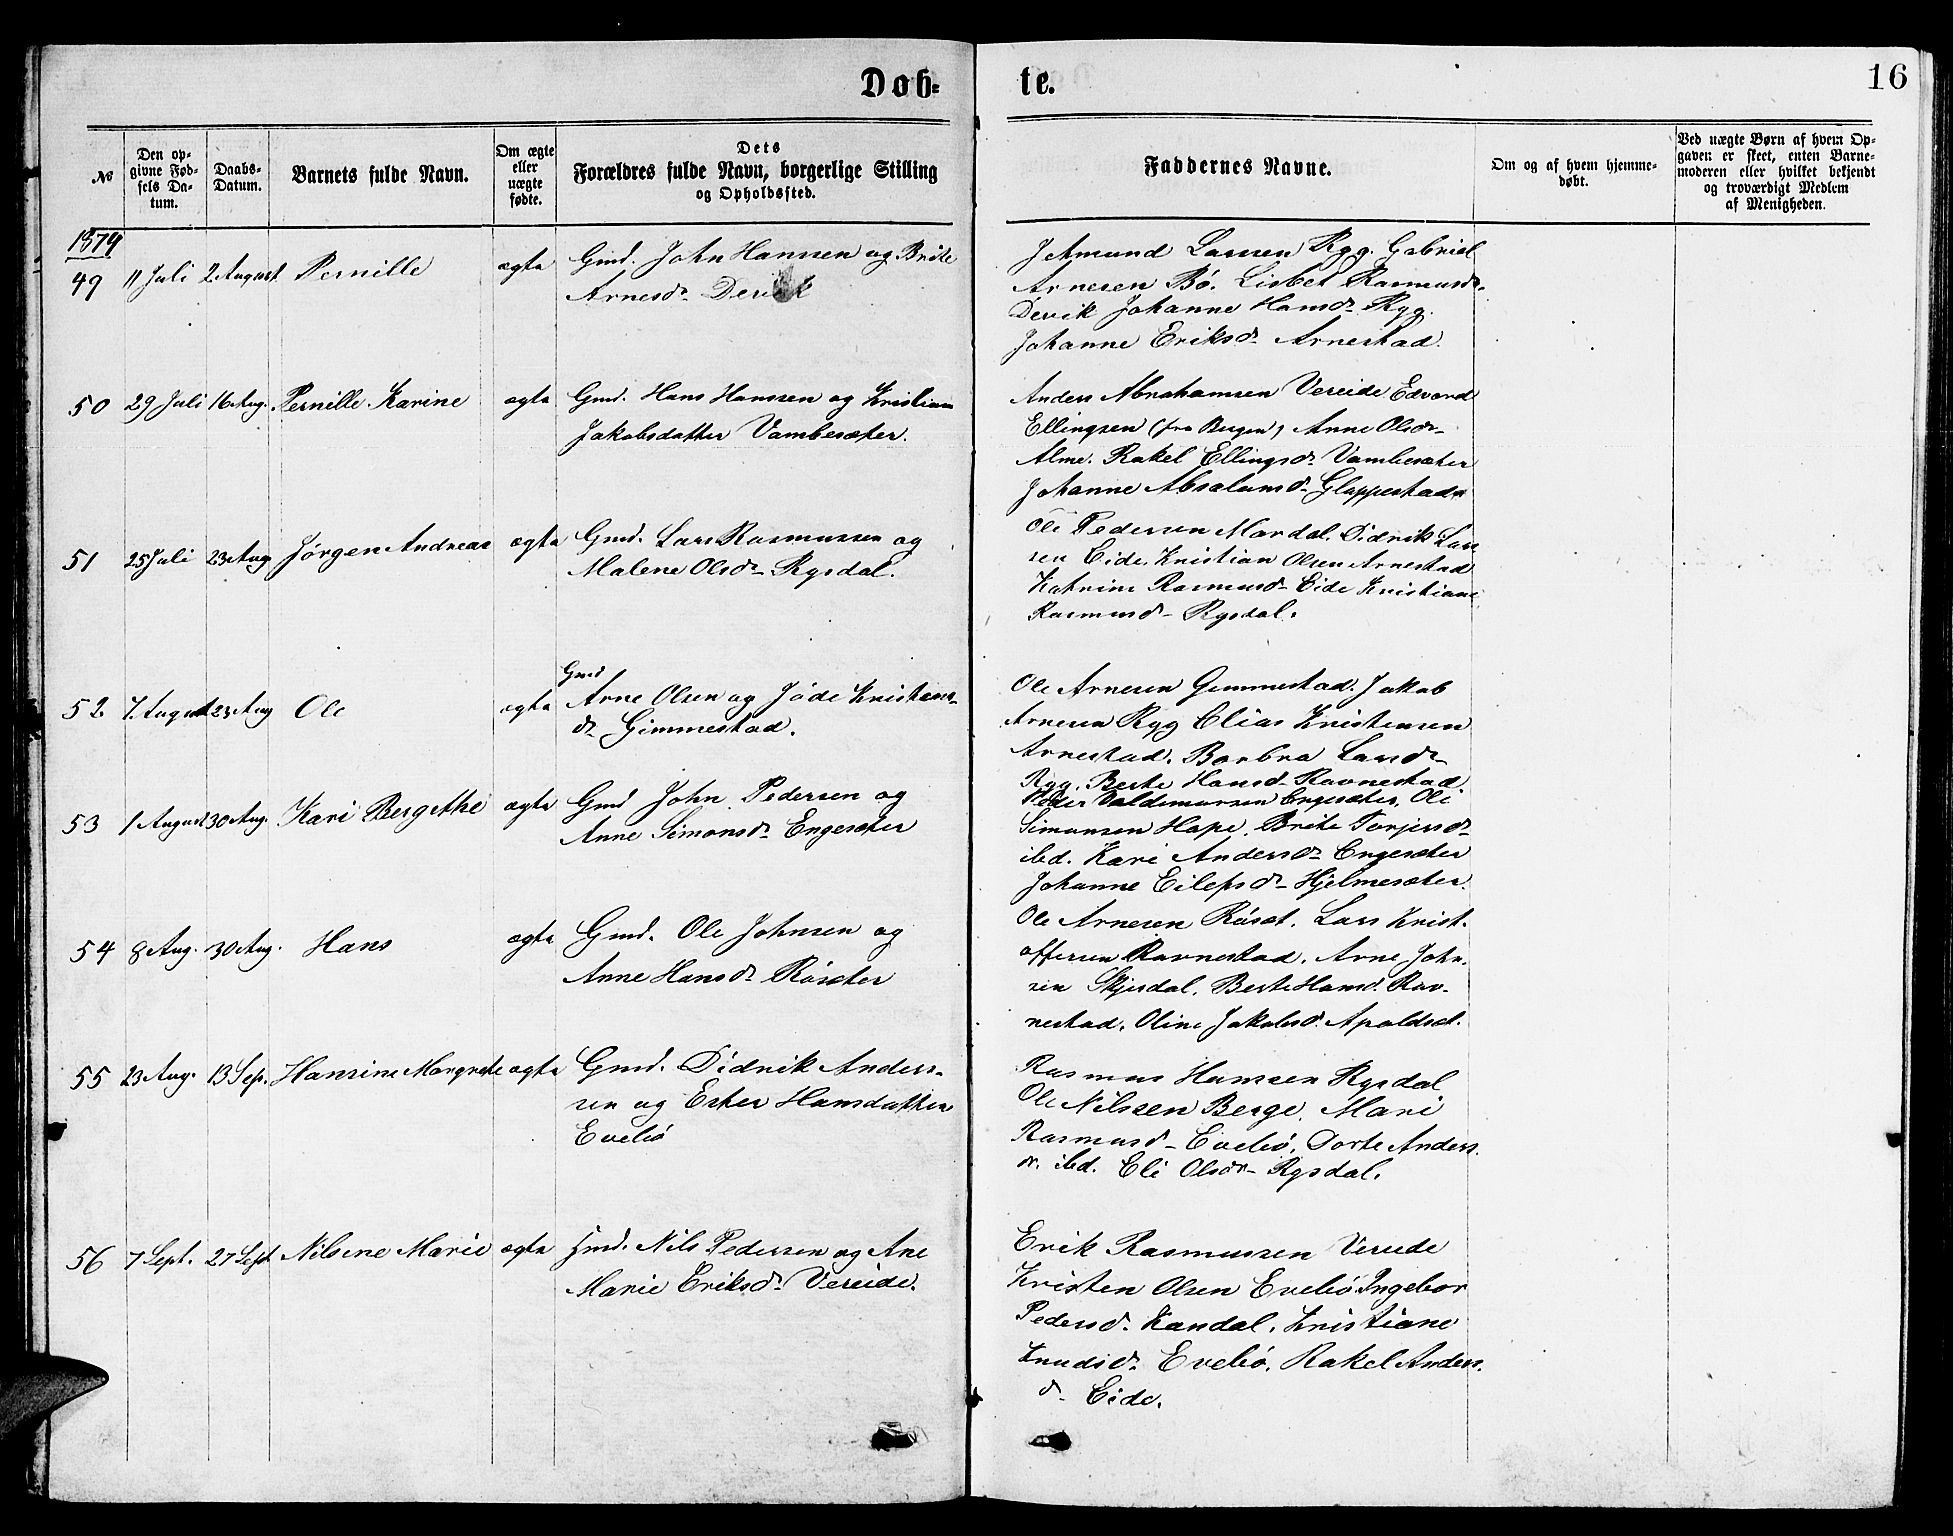 Døb-
te.
16
No
Den op-
givne Fød-
sels Da-
tum.
Daabs-
Datum.
Barnets fulde Navn.
Om ægte
eller
uægte
fødte.
Dets
Forældres fulde Navn, borgerlige Stilling
og Opholdssted.
Faddernes Navne.
Om og af hvem hjemme-
døbt.
Ved uægte Børn af hvem Op-
gaven er skeet, enten Barne-
moderen eller hvilket bekjendt
og troværdigt Medlem
af Menigheden.
1874
49 11 Juli 2 August Pernille ægte Gmd. John Hansen og Brite
Arnesdr Devik
Amund Larsen Rygg. Gabriel
Arnesen Bø. Lisbet Rasmusdr
Devik Johanne Hansdr Rygg.
Johanne Eriksdr Arnestad.
50 29 Juli 16 Aug. Pernille Karine ægte Gmd. Hans Hansen og Kristian
Jakobsdatter Vambesæter.
Anders Abrahamsen Vereide Edvard
Ellingsen (fra Bergen) Anne Olsdr
Alme. Rakel Ellingsdr Vambesæter
Johanne Absalomsdr Glappestad
51 25 Juli 23 Aug Jørgen Andreas ægte Gmd. Lars Rasmussen og
Malene Olsdr Rygsdal.
Ole Pedersen Mardal. Didrik Lar
sen Eide. Kristian Olsen Arnestad
Katrine Rasmusdr Eide Kristiane
Rasmusdr Rygsdal.
52 7. August 23 Aug Ole ægte Gmd
Arne Olsen og Jøde Kristens-
dr Gimmestad.
Ole Arnesen Gimmestad. Jakob
Arnesen Rygg Elias Kristensen
Arnestad. Barbra Larsdr
Rygg. Berte Hansdr Ravnestad
53 1 August 30 Aug. Kari Bergithe ægte Gmd John Pedersen og
Anne Simonsdr Engesæter
Peder Valdemarsen Engesæter. Ole
Simonsen Hope. Brite Torjersdr
ibd. Kari Andersdr Engesæter
Johanne Eilefsdr Hjelmesæter.
54 8 Aug. 30 Aug. Hans ægte Gmd. Ole Johnsen og
Anne Hansdr Røsæter
Ole Arnesen Røsæt. Lars Krist-
offersen Ravnestad. Arne John-
sen Skjerdal. Berte Hansd. Rav-
nestad. Oline Jakobsd. Apaldsæt.
55 23 Aug. 13 Sep. Hansine Margrete ægte Gmd. Didrik Anders-
sen og Ester Hansdatter
Evebø
Rasmus Hansen Rygsdal
Ole Nilssen Berge. Mari
Rasmusdr Evebø. Dorte Anders
dr. ibd. Eli Olsdr Rygsdal.
56 7 Sept. 27 Sept Nilsine Marie ægte Hmd. Nils Pedersen og Ane
Marie Eriksdr Vereide.
Erik Rasmussen Vereide
Kristen Olsen Evebø Ingebor
Pedersdr. Kandal. Kristiane
Knudsdr Evebø. Rakel Anders
dr Eide.